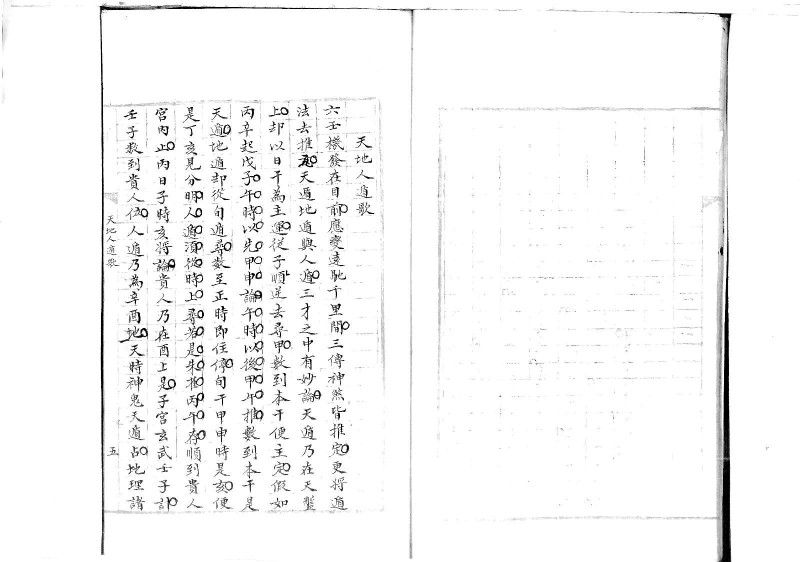 天地人遁歌
六壬機發在目前應變遠馳千里間三傳神煞皆推定更將遁
法去推尋天遁地遁與人遁三才之中有妙論天遁乃在天盤
上却以日干為主運從子順逆去尋甲數到本干便主定假如
丙辛起戊子午時以先甲申論午時以後甲午推數到本干是
天遁地遁却從旬遁尋數至正時即住停旬干甲申時是亥便
是丁亥見分明人遁須從時上尋若是朱推丙午存順到貴人
宮內止丙日子時亥將論貴人乃在酉上是子宮玄武壬子計
壬子数到貴人位人遁乃為辛酉地天時神鬼天遁占地理諸
天地人遁歌
五